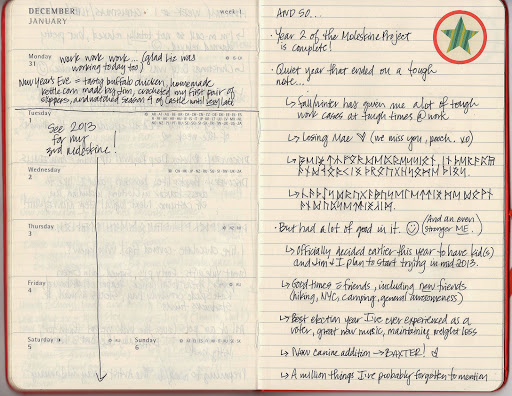 DECEMBER
JANUARY
week 1
Monday
31
work work work... (glad Liz was
working today too)
New Year's Eve = tasty buffalo chicken, homemade
kettle corn made by Jim, crocheted my first pair of
slippers, and watched season 4 of Castle until very late
Tuesday
1
See 2013
for my
3rd moleskine!
Wednesday
2
Thursday
3
Friday
4
Saturday
5
Sunday
6
AND SO...
· Year 2 of the Moleskine Project
is complete!
· Quiet year that ended on a tough
note...!
↳ fall/winter has given me a lot of tough
work cases at tough times @ work
↳ Losing Mae (we miss you, pooch. xo)
· But had a lot of good in it. (And an even
stronger ME.)
↳ Officially decided earlier this year to have kid(s)
and Jim & I plan to start trying in mid 2013.
↳ Good times = friends, including new friends
(hiking, NYC, camping, general awesomeness)
↳ Best election year I've ever experienced as a
voter, great new music, maintaining weight loss
↳ New canine addition → BAXTER!
↳ A million things I've probably forgotten to mention